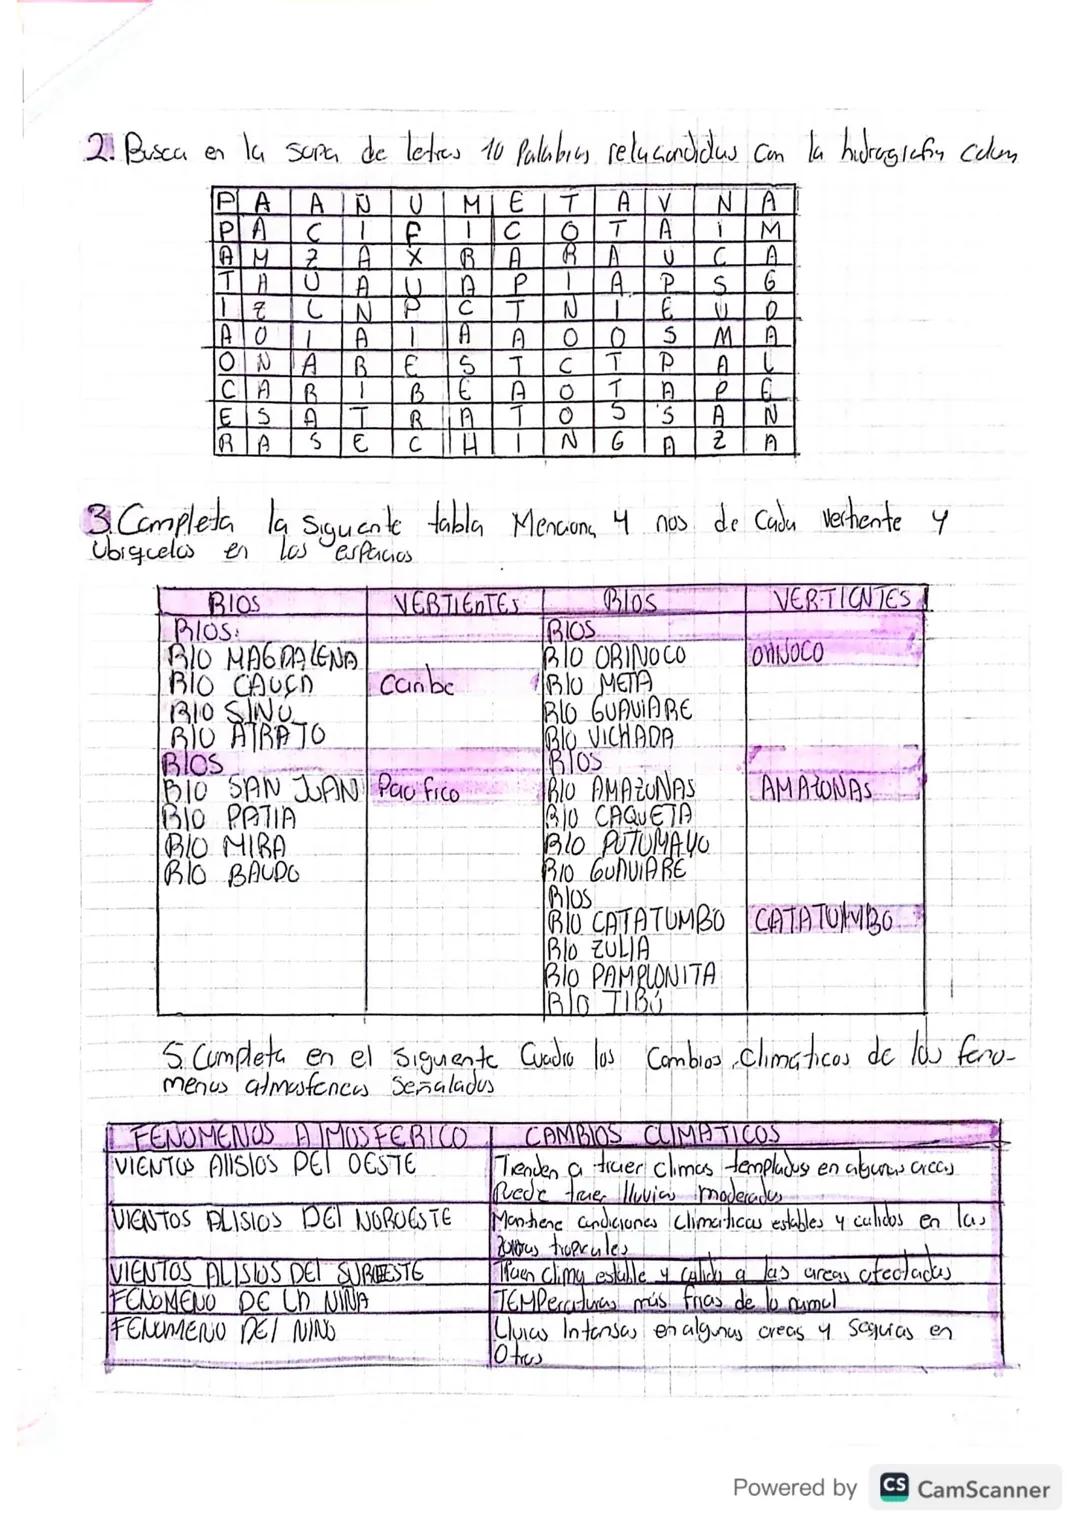 2. Busca en la sopa de letras 10 Palabras relaciondidas con la hidrografia colom
P A A Ñ U M E T A V N A
P A C I F I C O T A I M
A M Z A X R A R A U C A
T H U A U A P I A P S G
I Z L N P C T N I E U D
A O I A I A A O O S M A
O N A R E S T C T P A L
C A R I B E A O T A P E
E S A T R A T O S S A N
R A S E C H I N G A Z A
3. Completa la siguente tabla Menciona 4 rios de Cada vertiente y
Ubiquelos en los espacios
RIOS VERTIENTES RIOS VERTIENTES
RIOS: RIOS
RIO MAGDALENA RIO ORINOCO ORINOCO
RIO CAUCA Caribe RIO META
RIO SINU RIO GUAVIARE
RIO ATRATO RIO VICHADA
RIOS RIOS
RIO SAN JUAN Pacifico RIO AMAZONAS AMAZONAS
RIO PATIA RIO CAQUETA
RIO MIRA RIO PUTUMAYO
RIO BAUDO RIO GUAVIARE
RIOS
RIO CATATUMBO CATATUMBO
RIO ZULIA
RIO PAMPLONITA
RIO TIBÚ
5. Completa en el siguente Cuadro los Cambios Climáticos de los feno-
menos atmosfericos Señalados
FENOMENOS ATMOSFERICO CAMBIOS CLIMATICOS
VIENTOS AlISIOS DEl OESTE Tienden a traer climas templados en algunas areas
Puede traer lluvias moderadas
VIENTOS ALISIOS DEl NOROESTE Mantiene condiciones climaticas estables y calidos en las
zonas tropicales
VIENTOS ALISIOS DEl SUROESTE Traen clima estable y calido a las areas afectadas
FENOMENO DE LA NIÑA TEMPeraturas más frias de lo normal
FENOMENO DEl NIÑO Lluvias Intensas en algunas areas y sequias en
Otras
Powered by CS CamScanner